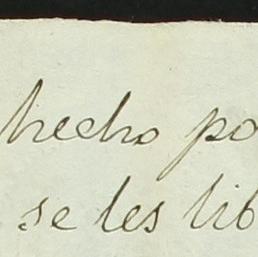 hecho po
se les lib